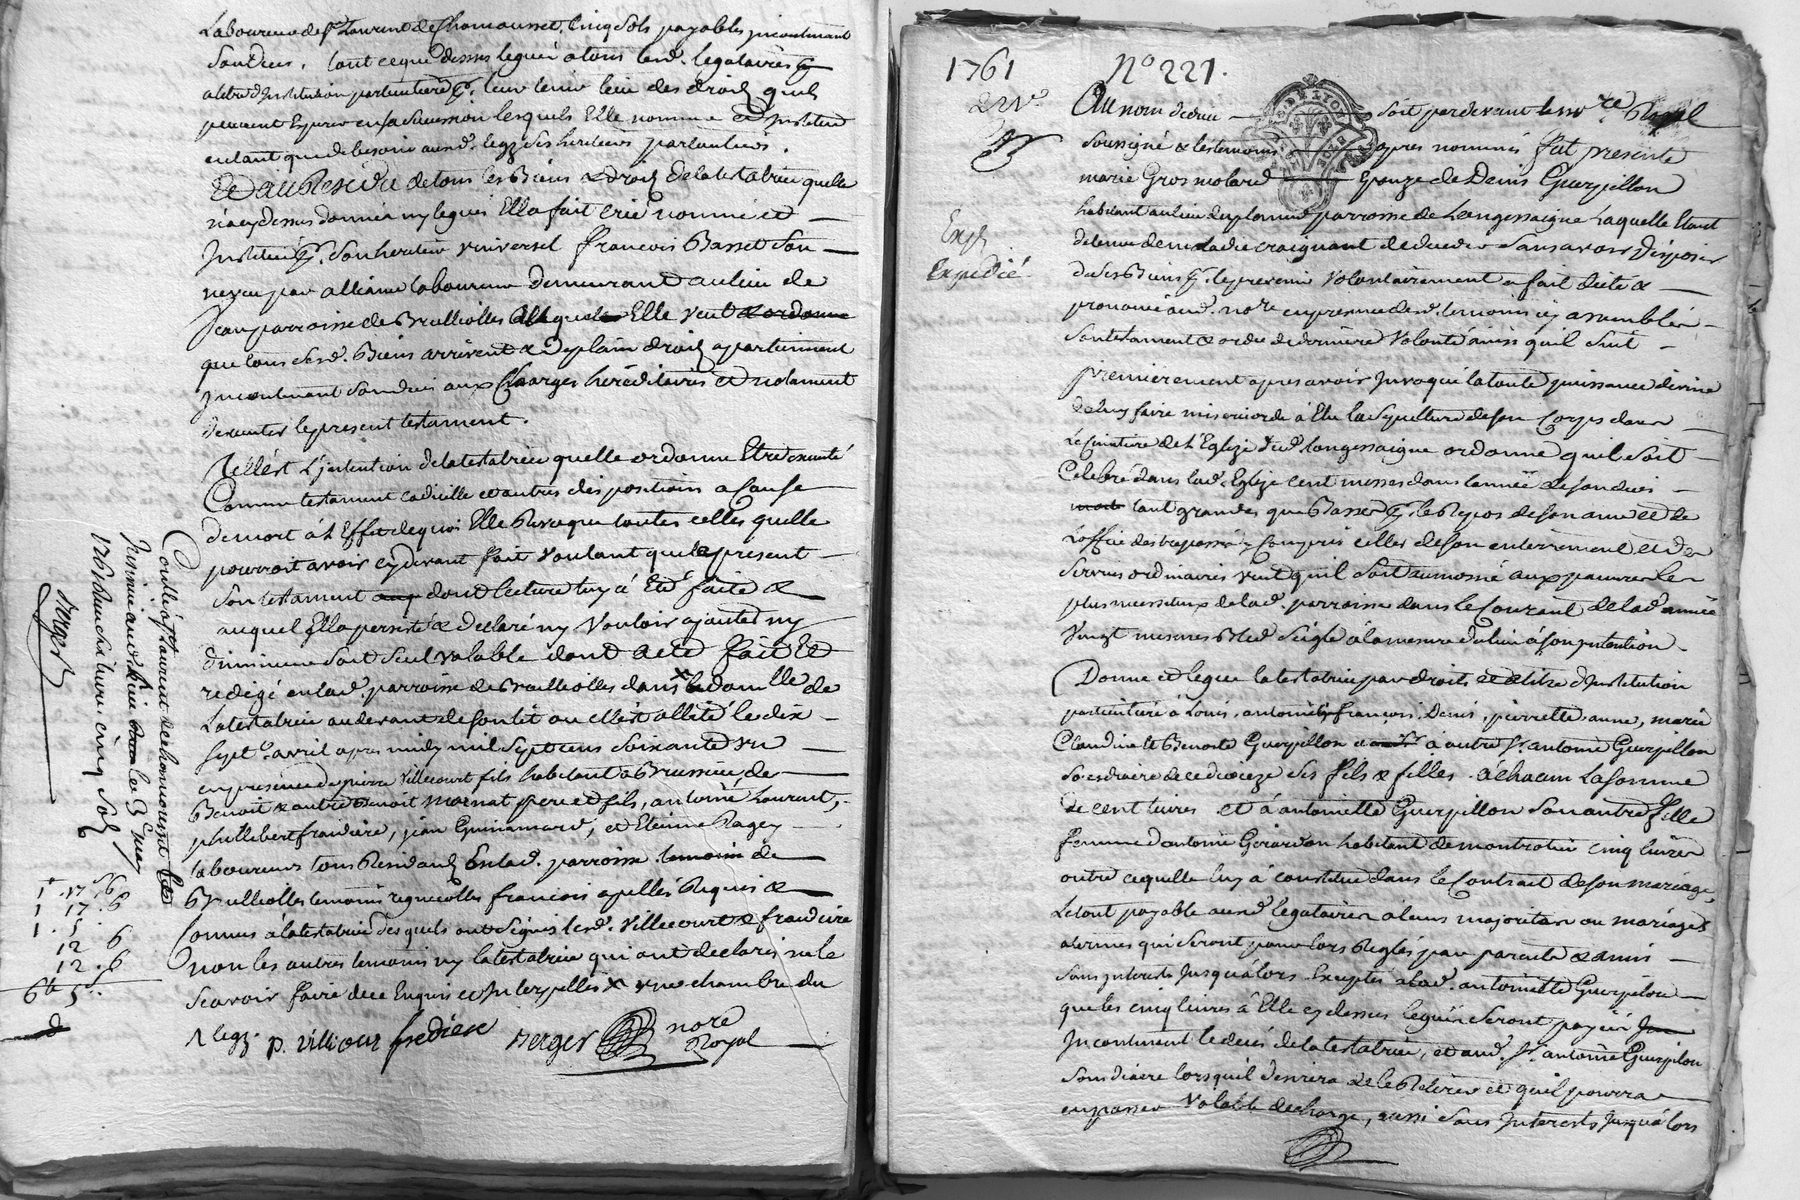 Laboureur de St Laurent de Chamousset, cinq sols payables incontinant
Son deces, tout ce que dessus legué a tous lesd. legataires
a titre d'Institution particuliere pr. leur tenir lieu des droits quils
peuvent Esperer en sa succession lesquels Elle nomme et Institue
en tant que de besoin aud. legs ses heritiers particuliers.
Et au Residu de tous les Biens & droits de la testatrice quelle
n'a cy dessus donné ny legués Ella fait créé nommé et
Institué pr. Son heritier universel françois Basset Son
neveu par alliance laboureur demeurant au lieu de
parroisse de Brullioles auquel Elle veut & ordonne
que tous sesd. Biens arrivent & de plain droit apartiennent
Incontinant Son deces aux Charges héréditaires et notament
d'executer le present testament.
Telle est L'jntention de la testatrice quelle ordonne Etre executé
Comme testament codicille et autres dispositions a Cause
de mort à L'Effet de quoi Elle Revoque toutes celles quelle
pourroit avoir cy devant fait voulant que le present
Son testament dont lecture luy à Eté faite &
auquel Ella persisté & declaré ny vouloir ajouter ny
diminuer Soit Seul valable dont acte fait et
redigé en lad. parroisse de Brullioles dans le domlle de
La testatrice au devant de son lit ou elle est alitée le dix
Sept avril apres midy mil Sept cens Soixante un
en presence de pierre Villecourt fils habitant a Brussieu, de
Benoit & autre Benoit mornat pere et fils, antoine Laurent,
philibert fraidiere, jean Guinamard, et Etienne Ragey
laboureurs tous Residants En lad. parroisse de
Brullioles temoins françois apellés Requis &
Connus à la testatrice desquels ont Signés lesd. Villecourt & fraidiere
non les autres temoins ny la testatrice qui ont declarés ne le
Scavoir faire de ce Enquis et Interpellés x une chambre du
p. villicour frediere Berger nore
Royal
Controllé a St Laurent de chamousset
le 3 may
1761 cinq Sols
Berger
1 . 17 . 6
1 17 . 6
1 . 5
12 6
12 . 6
6lt 5s.
1761
No 221.
Au nom de dieu Soit par devant le nore Royal
Soussigné & les temoins apres nommés fut presente
marie Gros molard Epouze de Denis Guerpillon
habitant au lieu du parroisse de Longessaigne Laquelle Etant
detenue de maladie craignant de deceder Sans avoir disposer
de ses Biens pr. le prevenir volontairement a fait dicté &
prononcé aud. nore en presence desd. temoins icy assemblés
Son testament & ordre de derniere volonté ainsi quil Suit
premierement apres avoir Invoqué la toute puissance divine
de luy faire misericorde à Elu la Sepulture de son Corps dans
Le Cimetiere de L'Eglize dud. Longessaigne ordonne quil soit
Celebré dans lad. Eglize cent messes dans L'année de son deces
tant grandes que Basses pr. le Repos de son ame et de
L'office des trepassés y Compris celles de son enterrement et des
Services ordinaires veut quil Soit aumosné aux pauvres les
plus necessiteux de lad. parroisse dans le Courant de lad année
Vingt mesures Bled Seigle à la mesure du lieu à son jntention.
Donne et legue la testatrice par droits et titre d'Institution
particuliere à Louis, antoine, françois, Denis, pierrette, anne, marie
Claudine et Benoite Guerpillon à autre Sr. antoine Guerpillon
Soudiaire de ce diocèze ses fils & filles à chacun La Somme
de cent livres et à antoinette Guerpillon Son autre fille
femme d'antoine Girardon habitant de montrotier cinq livres
outre ce quelle luy à constitué dans le Contrat de son mariage,
Le tout payable aud. legataires a leurs majorités ou mariages
a termes qui Seront pour lors Reglés par parents & amis
Sans jnterests Jusqu'alors Excepter a lad. antoinette Guerpillon
que les cinq livres à Elle cy dessus legués Seront payés
Incontinent le décès de la testatrice, et aud. Sr. antoine Guerpillon
Soudiacre lorsquil desirera de le Retirer et quil pourra
en passer valable decharge, aussi Sans Interests Jusqu'alors
Expédié